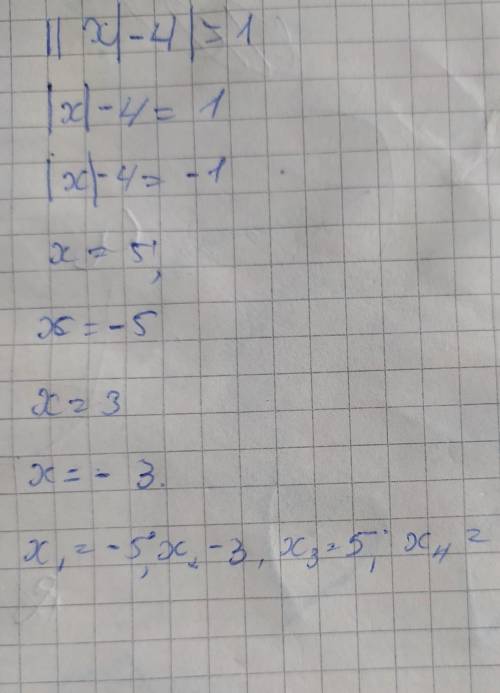 ||x|-4|=1
|x|-4=1
|x|-4=-1
x=5;
x=-5
x=3
x=-3.
x₁=-5; x₂-3, x₃=5; x₄=